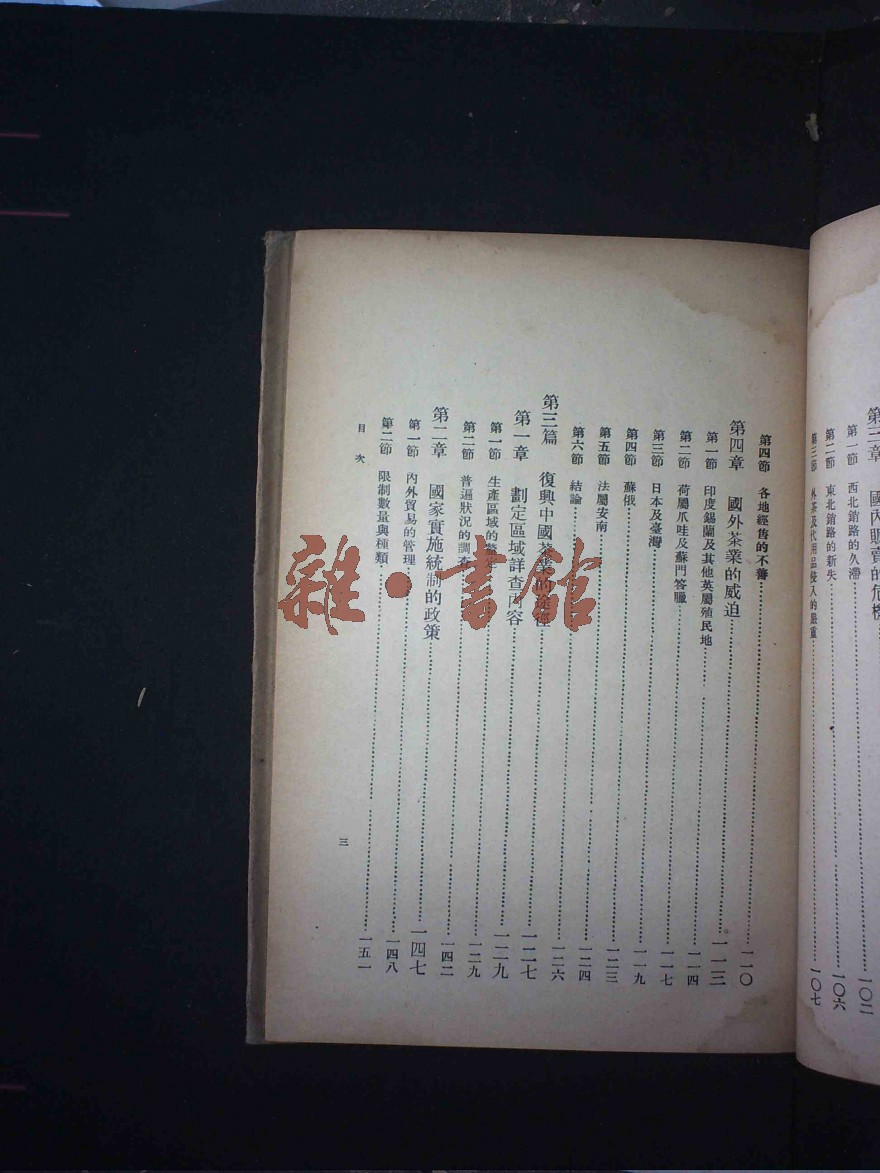 第三章 國內販賣的危機
第一節 西北銷路的久滯……一〇二
第二節 東北銷路的新失……一〇六
第三節 外茶及代用品侵入的嚴重……一〇七
第四節 各地經售的不善……一一〇
第四章 國外茶業的威迫……一一三
第一節 印度錫蘭及其他英屬殖民地……一一四
第二節 荷屬爪哇及蘇門答臘……一一七
第三節 日本及臺灣……一一九
第四節 蘇俄……一二三
第五節 法屬安南……一二四
第六節 結論……一二六
第三篇 復興中國茶業的途徑……一二七
第一章 劃定區域詳查內容……一二九
第一節 生產區域的……一二九
第二節 普遍狀況的調查……一四二
第二章 國家實施統制的政策……一四七
第一節 內外貿易的管理……一四八
第二節 限制數量與種類……一五一
目次
三
雜·書館